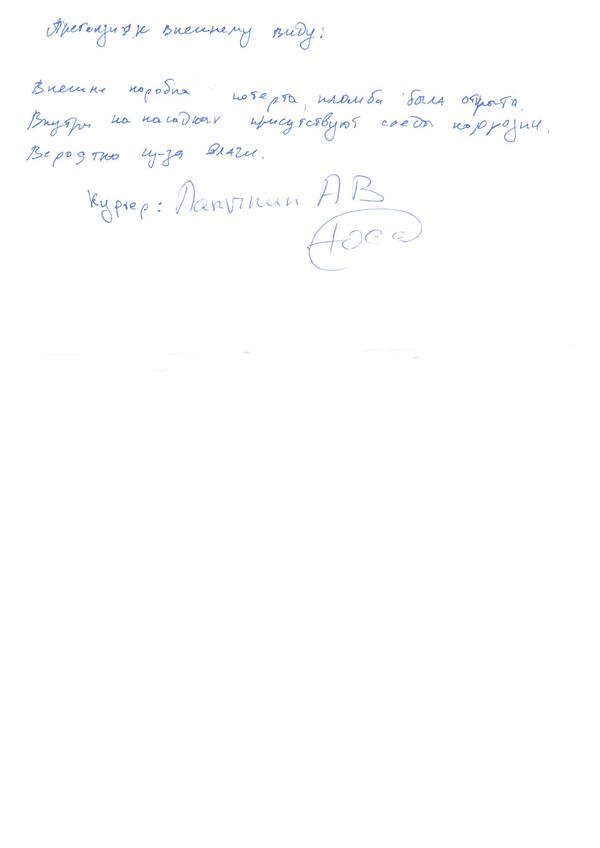 Претензия к внешнему виду:
Внешне коробка потерта, пломба была открыта.
Внутри на насадках присутствуют следы коррозии.
Вероятно из-за влаги.
Курьер: Лапыкин АВ